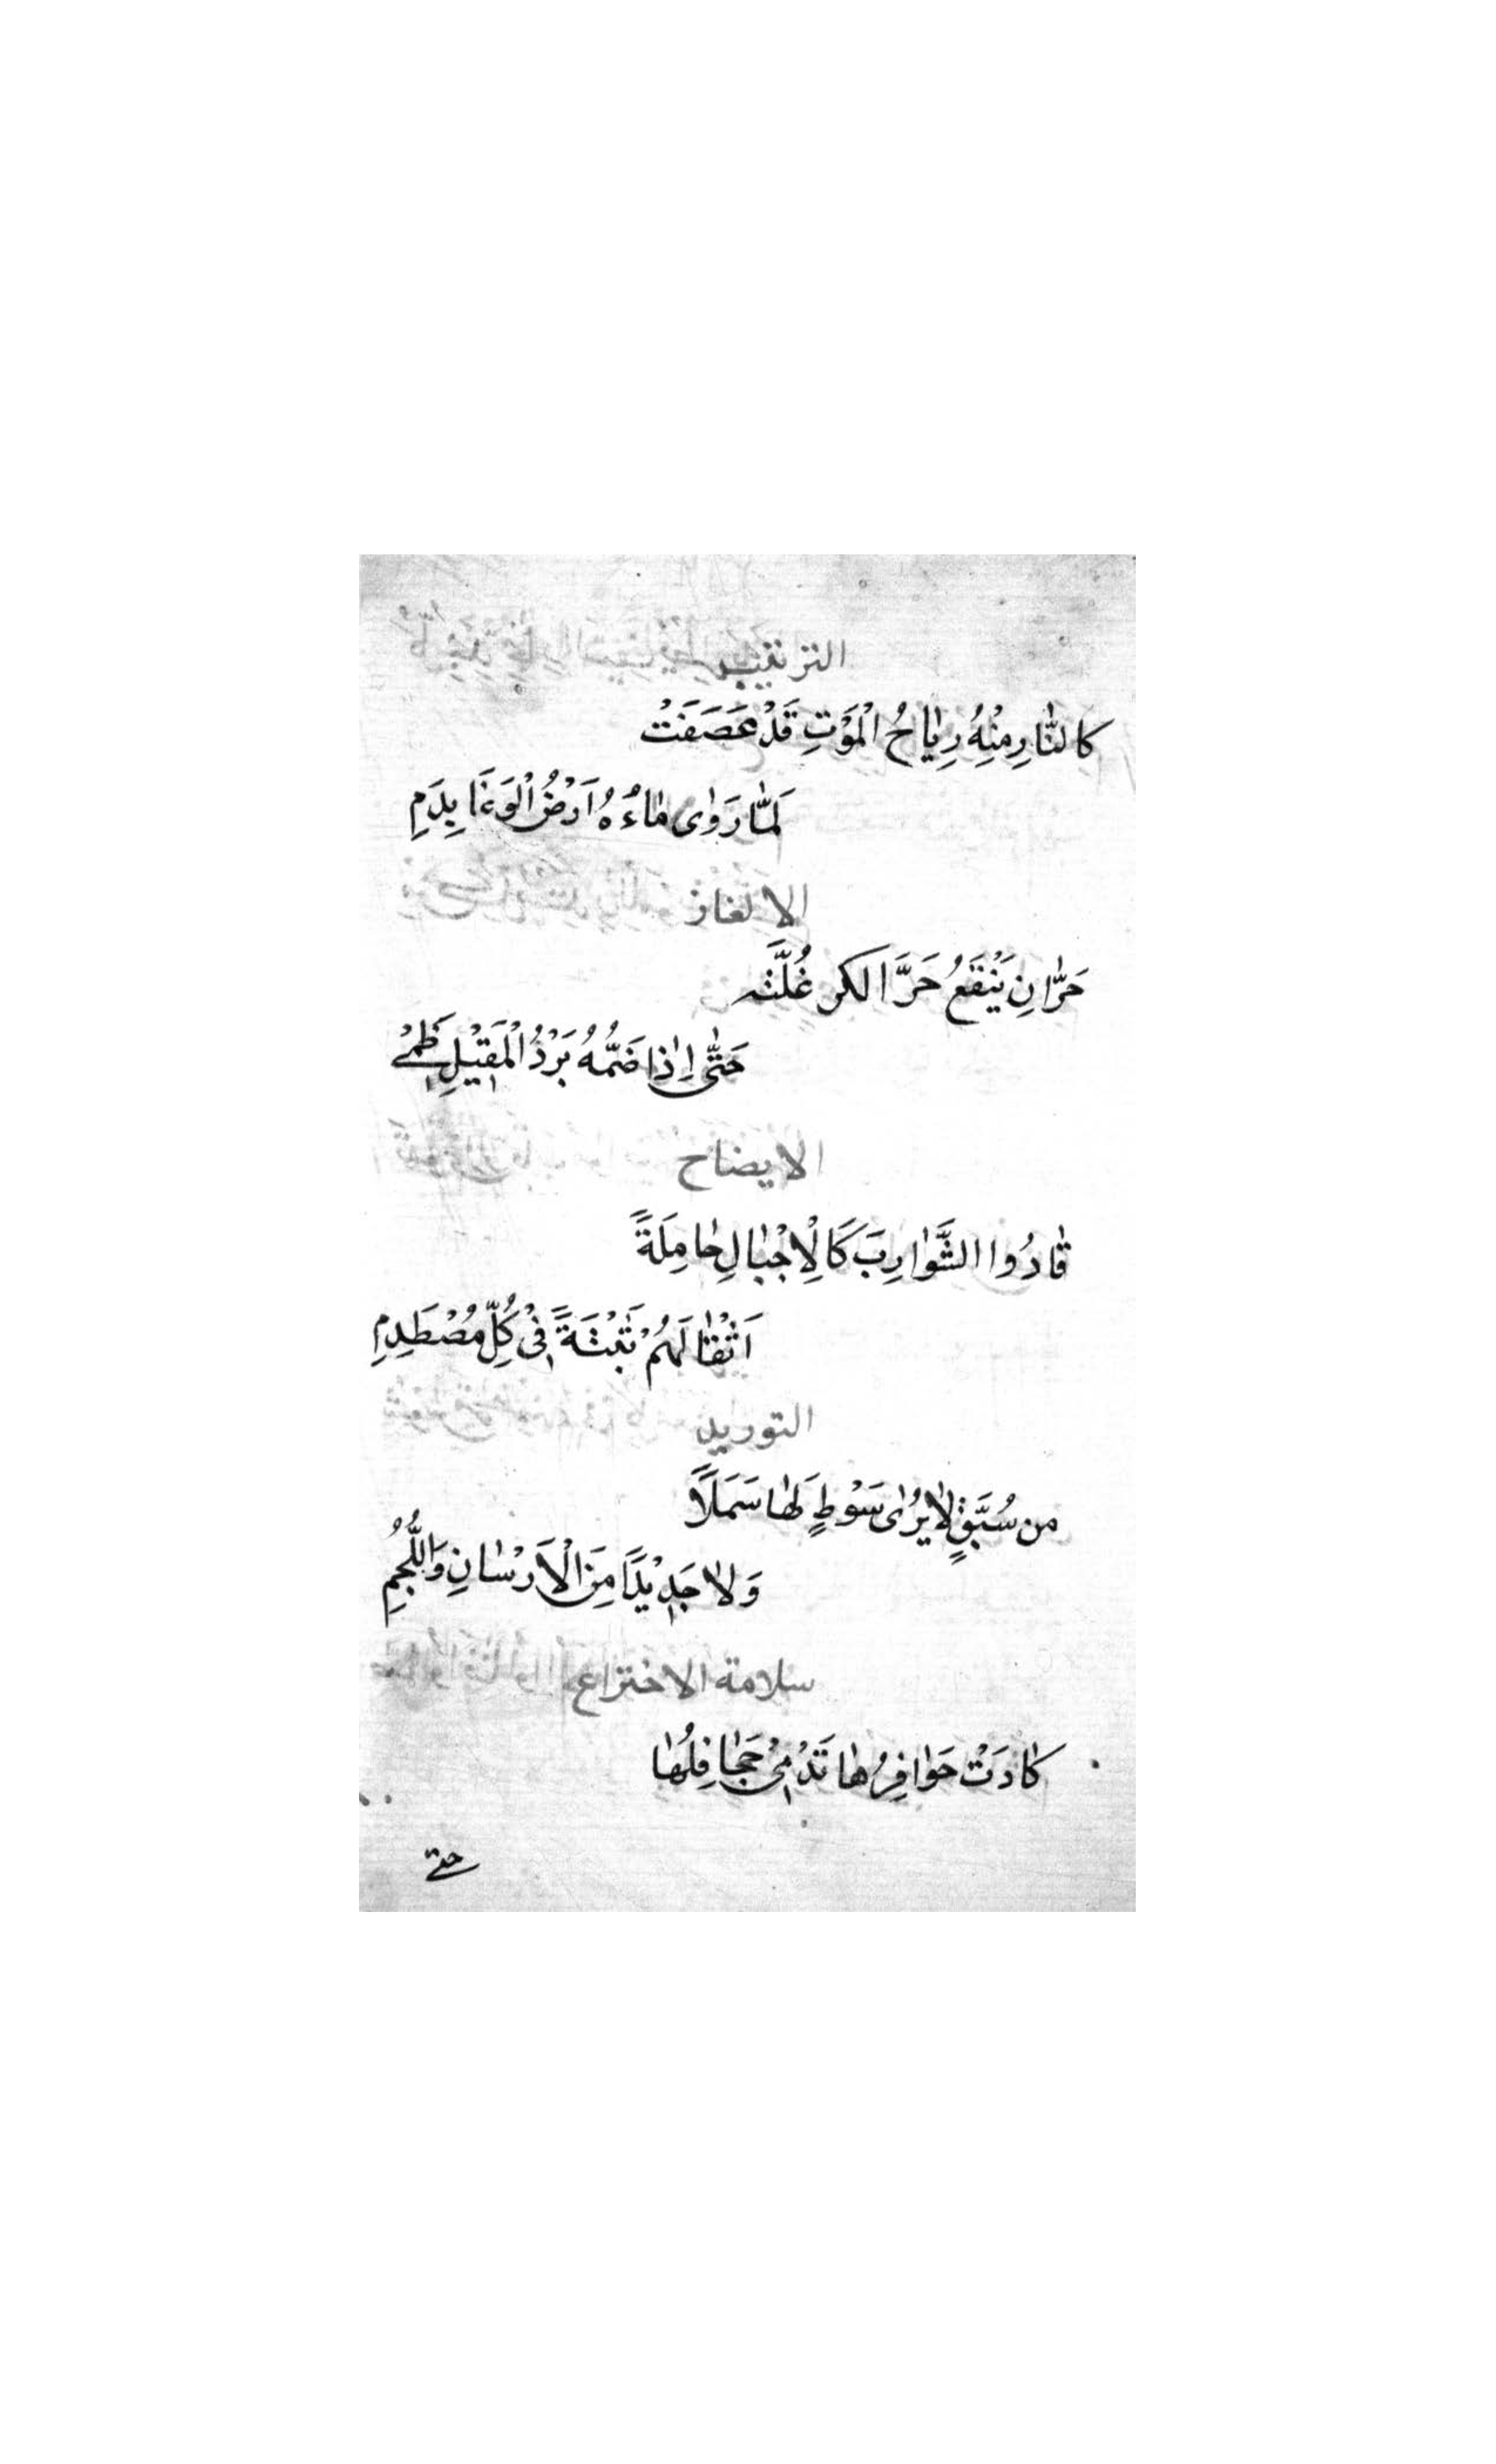 الترتيب
كَالنَّارِ مِنْهُ رِيَاحُ الْمَوْتِ قَدْ عَصَفَتْ
لَمَّا رَوٰى مَاءُهُ اَرْضُ الْوَغَا بِدَمِ
الالغاز
حَرَّانِ يَنْقَعُ حَرَّ الكر غُلَّتَه
حَتّٰى اِذَا ضَمَّهُ بَرْدُ الْمَقِيْلِ ظَمِي
الايضاح
قَادُوا الشَّوَارِبَ كَالْاِجْبَالِ حَامِلَةً
اَثْقَالَهُمْ ثَبْتَةً فِيْ كُلِّ مُصْطَدِمِ
التوريد
من سُبَّقٍ لَا يُرٰى سَوْطٍ لَهَا سَمَلًا
وَلَا جَدِيْدًا مِنَ الْاَرْسَانِ وَاللُّجُمِ
سلامة الاختراع
كَادَتْ حَوَافِرُهَا تَدْمِيْ حَجَافِلُهَا
حتى